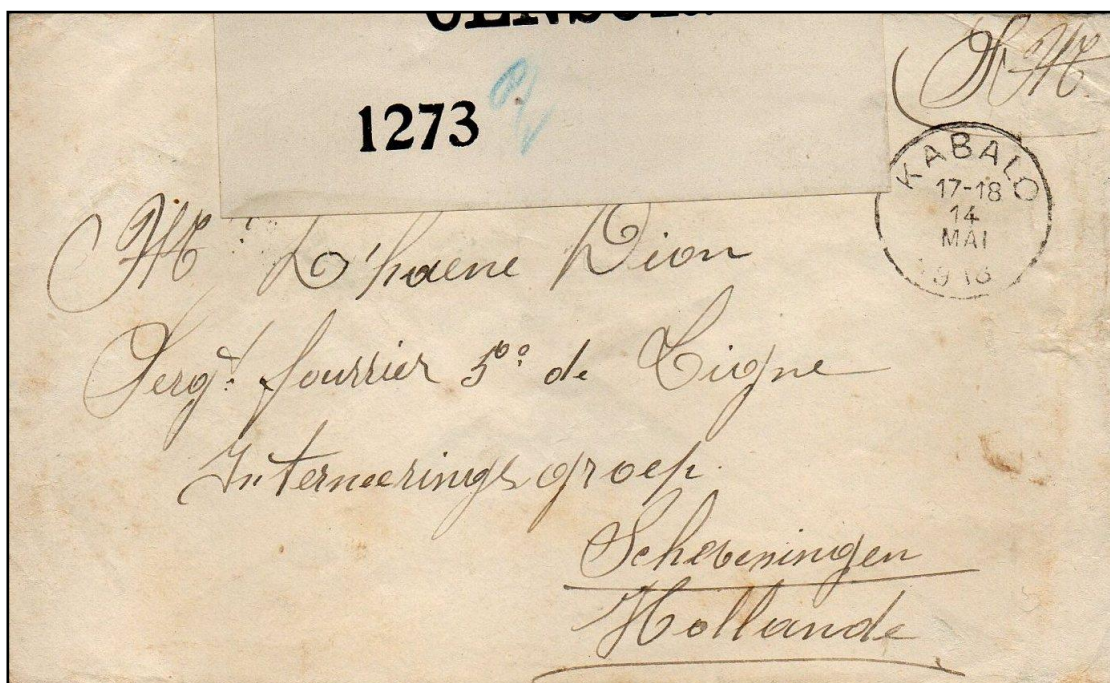 CENSOR
1273
S.M.
KABALO
17-18
14
MAI
1918
Mr D'haene Dion
Sergt fourrier 5e de Ligne
Interneerings groep.
Scheveningen
Hollande